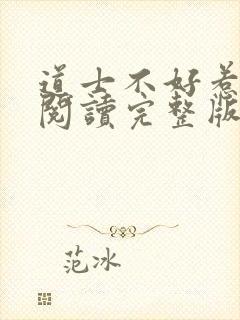 道士不好惹
閱讀完整版
范冰